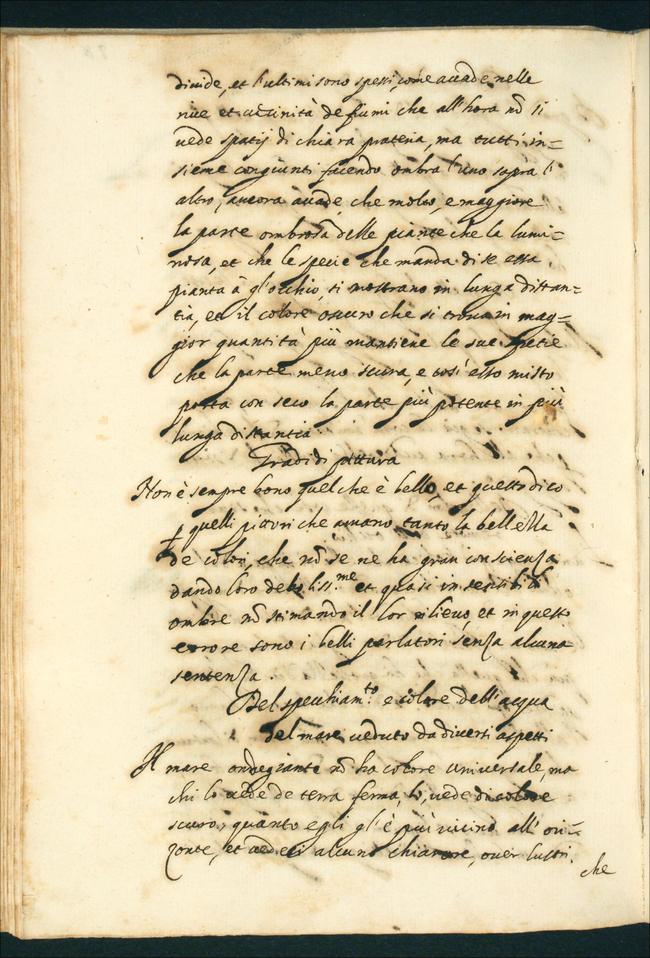 divide, et l'ultimi sono spessi, come accade nelle
riue et uicinità de fiumi che all'hora nō si
uede spatij di chiara prateria, ma tutti in=
sieme congiunti facendo ombra l'uno sopra l'
altro, ancora accade, che molto, e maggiore
la parte ombrosa delle piante che la lumi=
nosa, et che le specie che manda di se essa
pianta à gl'occhio, si mostrano in lunga distan=
tia, et il colore oscuro che si troua in mag=
gior quantità più mantiene le sue spetie
che la parte meno scura, e così esso misto
porta con seco la parte più potente in più
lunga distantia.
Gradi di pittura
Non è sempre bono quel che è bello, et questo dico
p quelli pittori che amano tanto la bellezza
de colori, che nō se ne ha gran conscienza
dando loro deboliss.me et quasi insensibili
ombre nō stimando il lor rilieuo, et in questo
errore sono i belli parlatori senza alcuna
sentenza.
Del specchiam.to e colore dell'acqua
del mare ueduto da diuersi aspetti
Il mare ondegiante nō ha colore uniuersale, ma
chi lo uede de terra ferma, lo uede di colore
scuro, quanto egli gl'è più uicino all' ori=
zonte, et uedeci alcuno chiarore, ouer lustri
che